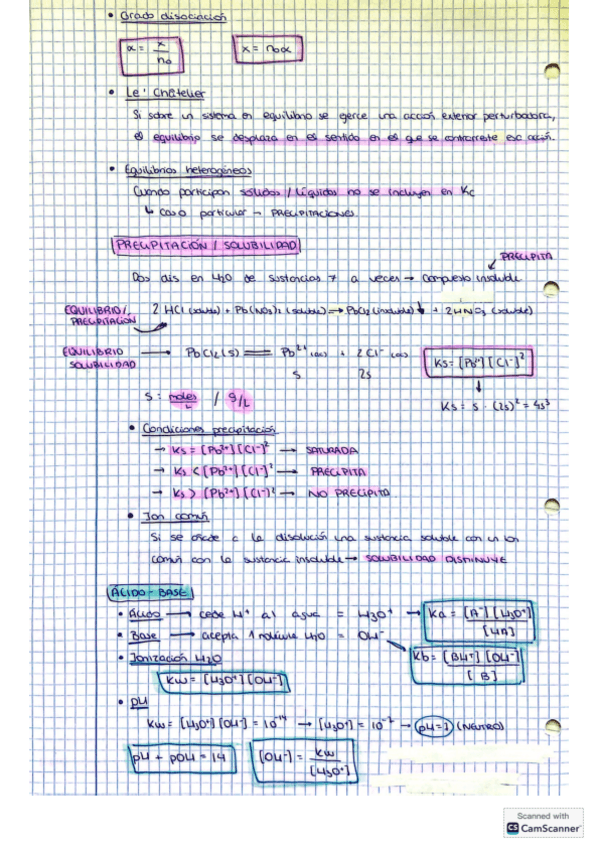 • Grado disociación
α = x / n₀    x = n₀α
• Le' Châtelier
Si sobre un sistema en equilibrio se ejerce una acción exterior perturbadora,
el equilibrio se desplaza en el sentido en el que se contrarreste esa acción.
• Equilibrios heterogéneos
Cuando participan sólidos / líquidos no se incluyen en Kc
↳ Caso particular → PRECIPITACIONES
PRECIPITACIÓN / SOLUBILIDAD
PRECIPITA
Dos dis en H2O de sustancias ≠ a veces → Compuesto insoluble
EQUILIBRIO/ 2 HCl (soluble) + Pb(NO3)2 (soluble) → PbCl2 (insoluble) ↓ + 2HNO3 (soluble)
PRECIPITACIÓN
EQUILIBRIO → PbCl2 (s) ⇌ Pb²⁺ (aq) + 2Cl⁻ (aq)    Ks = [Pb²⁺][Cl⁻]²
SOLUBILIDAD
s    2s
S: moles/L / g/L    Ks = s · (2s)² = 4s³
• Condiciones precipitación
→ Ks = [Pb²⁺][Cl⁻]² → SATURADA
→ Ks < [Pb²⁺][Cl⁻]² → PRECIPITA
→ Ks > [Pb²⁺][Cl⁻]² → NO PRECIPITA
• Ion común
Si se añade a la disolución una sustancia soluble con un ion
común con la sustancia insoluble → SOLUBILIDAD DISMINUYE
ÁCIDO - BASE
• Ácido → cede H⁺ al agua = H3O⁺ → Ka = [A⁻][H3O⁺] / [HA]
• Base → acepta 1 molécula H2O = OH⁻
Kb = [BH⁺][OH⁻] / [B]
• Ionización H2O
Kw = [H3O⁺][OH⁻]
• pH
Kw = [H3O⁺][OH⁻] = 10⁻¹⁴ → [H3O⁺] = 10⁻⁷ → pH=7 (NEUTRO)
pH + pOH = 14    [OH⁻] = Kw / [H3O⁺]
Scanned with
CS CamScanner